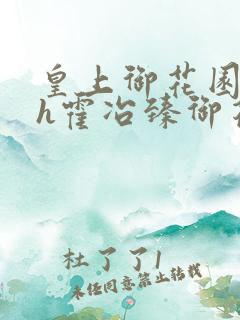 皇上御花园
h霍冶臻御花
杜了了1
未经同意禁止转载